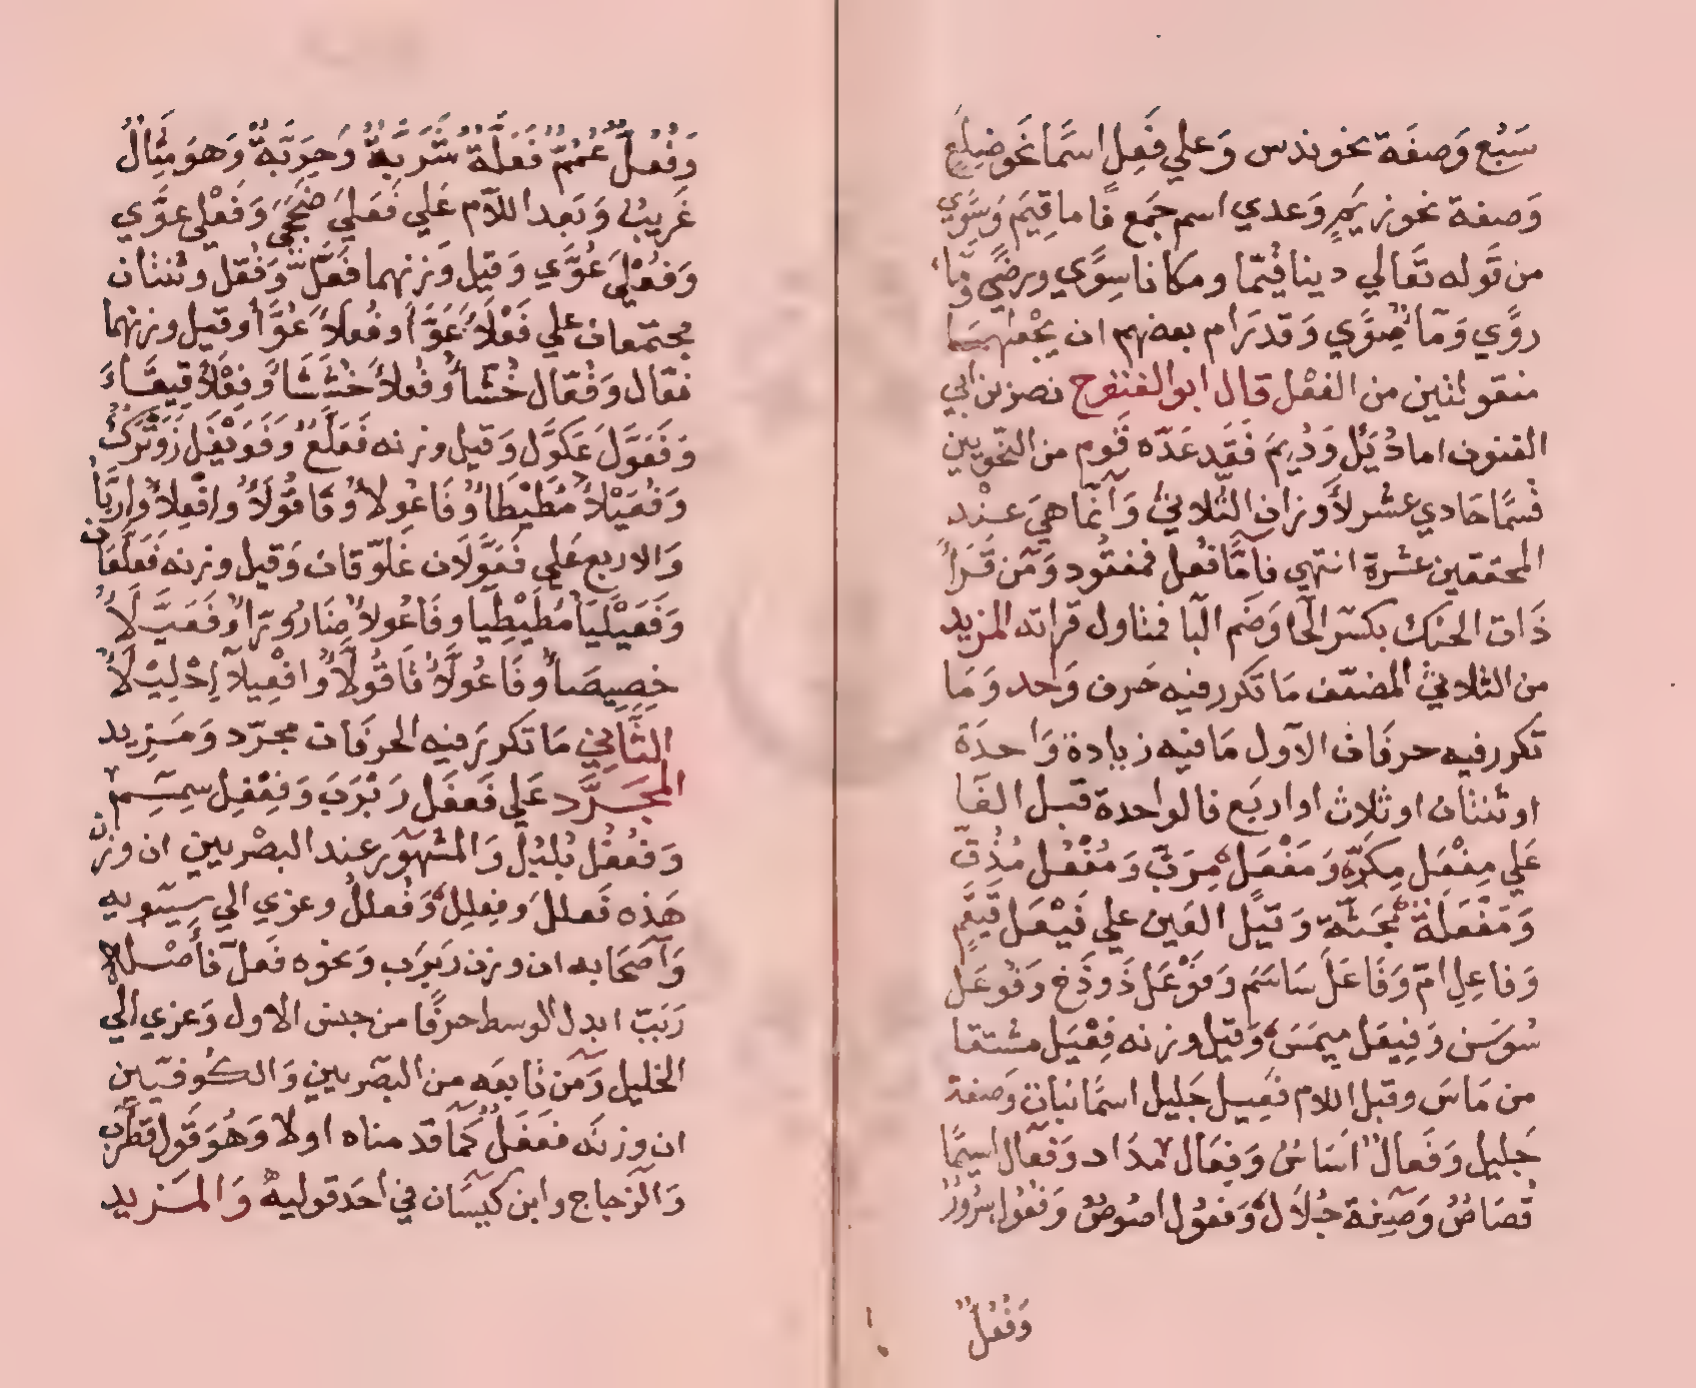 سَبُع وَصفَة نحو ندس وَعلي فَعِل اسمًا نحو ضِلَع
وَصفة نحو زِيَم وَعدي اسم جمَع فاما قِيَم وَسِوَي
من قَوله تَعَالي دينا قيَما ومكانا سِوًي ورضًي وَما
روًي وَمَا صِوًي وَقد رَام بعضهم ان يجْعلهما
منقولين من الفعْل قال ابو الفتوح نصر بن ابي
الفنون اما دُئِل وَرُئِمَ فَقَد عَدّه قَوم من النحَويين
قسمًا حَادي عشر لأوزان الثلاثي وَانما هيَ عنْد
المحققين عشرة انتهي فامَّا فعُل فمفقود وَمَن قَرأ
ذَات الحبُك بكسْر الحَا وَضَم البَا فمتاول قراته المزيد
من الثلاثي المضعّف مَا تكرر فيه حَرف وَاحد وَمَا
تكرر فيه حرفَان الاول مَا فيه زيادة وَاحدَة
او ثنتان او ثلاث او اربَع فالواحدة قبل الفَا
عَلي مِفْعَل مِكَرّ وَمَفْعَل مَرَبّ وَمُفْعُل مُدُقّ
وَمَفْعَلة مجَثّة وَقبْل العَين علي فَيْعَل قَيقَم
وَفاعِل امّ وَفَاعَل سَاسَم وَفَوْعَل ذَوذَخ وَفُوعَل
سُوسَن وَفِيعَل ميمَس وَقيل وزنه فِعْيَل مشتقا
من مَاسَ وقبل اللام فَعِيل جَليل اسمًا نبات وَصفة
جَليل وَفَعال اسَاس وَفِعَال مدَاد وَفُعَال اسمًا
قُصَاصُ وَصفة جُلَال وَفعُول اصُوصُ وَفُعُول سُرُورُ
وَفُعُلّ
وَفُعُلّ عُمُمّ فَعَلَّة شَرَبَّةُ وَجَرَبَّةُ وَهوَ مِثَالُ
غَريبُ وَبَعد اللام عَلي فَعَلَي ضَجَجَي وَفَعْلي عوَّي
وَفُعْلَي عُوَّي وَقيل وَزنهما فَعَّل وَفُعّل وثنتان
مجتمعان علي فَعْلَاءُ عَوَّا او فُعلاءُ عُوَّا وَقيل وزنهما
فعّال وَفُعّال خُشّاءُ وَفُعلاءُ خُشَشَاءُ وَفِعْلاءُ قِيقَاءُ
وَفَعَوَّل عَكَوَّل وَقيل وزنه فَعَلَّعُ وَفَوَنْعَل زَوَنْزَكُ
وَفُعَيْلاءُ مُطَيْطَاءُ وَفَاعُولاءُ وَفَاعُولاءُ وافْعِلاءُ وارِبَّا
وَالاربع عَلي فَعَوَّلَان عَلوّقان وَقيل وزنه فَعَلَّعَان
وَفُعَيْلِيَاءُ مُطَيْطِيَا وَفَاعُولاءُ ضَارُورَا وَفَعَيَّلَاءُ
خصِيصَاءُ وَفَاعُولَاءُ فَاعُولَاءُ وافْعِيلاءُ اِحْلِيْلَاءُ
الثَّاني مَا تكررَ فيه الحرفَان مجرّد وَمَزيد
المجَرَّد عَلي فَعفَل رَبْرَبَ وَفِعْفِل سِمسِم
وَفُعْفُل بُلبُل وَالمشهَور عند البصْريين ان وزن
هَذه فَعلل وَفِعلِل وَفُعللُ وعزي الي سِيبَويه
وَاصحَابه ان وزن رَبرَب وَنحوه فَعل فأصْله
رَبَبّ ابدل الوسط حرفًا من جنس الاول وَعزي الي
الخليل وَمن تابعَه من البصَريين وَالكُوفيّين
ان وزنَه فَعفَلُ كمَا قدمناه اولا وَهُوَ قَول قطرُب
وَالزجاج وابن كيسَان في احَد قوليه وَالمَزيد